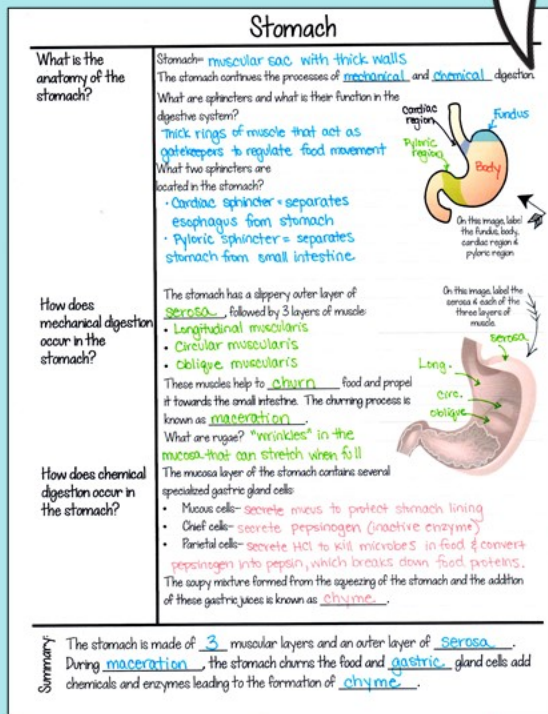 Stomach
What is the
anatomy of the
stomach?
Stomach= muscular sac with thick walls
The stomach continues the processes of mechanical and chemical digestion.
What are sphincters and what is their function in the
digestive system?
Thick rings of muscle that act as
gatekeepers to regulate food movement
What two sphincters are
located in the stomach?
• Cardiac sphincter = separates
esophagus from stomach
• Pyloric sphincter = separates
stomach from small intestine
Cardiac
region
Fundus
Pyloric
region
Body
On this image, label
the fundus, body,
cardiac region &
pyloric region
How does
mechanical digestion
occur in the
stomach?
The stomach has a slippery outer layer of
serosa, followed by 3 layers of muscle:
• Longitudinal muscularis
• Circular muscularis
• Oblique muscularis
These muscles help to churn food and propel
it towards the small intestine. The churning process is
known as maceration.
What are rugae? "Wrinkles" in the
mucosa that can stretch when full
On this image, label the
serosa & each of the
three layers of
muscle.
serosa
Long.
Circ.
oblique
How does chemical
digestion occur in
the stomach?
The mucosa layer of the stomach contains several
specialized gastric gland cells:
• Mucous cells- secrete mucus to protect stomach lining
• Chief cells- secrete pepsinogen (inactive enzyme)
• Parietal cells- secrete HCl to kill microbes in food & convert
pepsinogen into pepsin, which breaks down food proteins.
The soupy mixture formed from the squeezing of the stomach and the addition
of these gastric juices is known as chyme.
Summary
The stomach is made of 3 muscular layers and an outer layer of serosa.
During maceration, the stomach churns the food and gastric gland cells add
chemicals and enzymes leading to the formation of chyme.